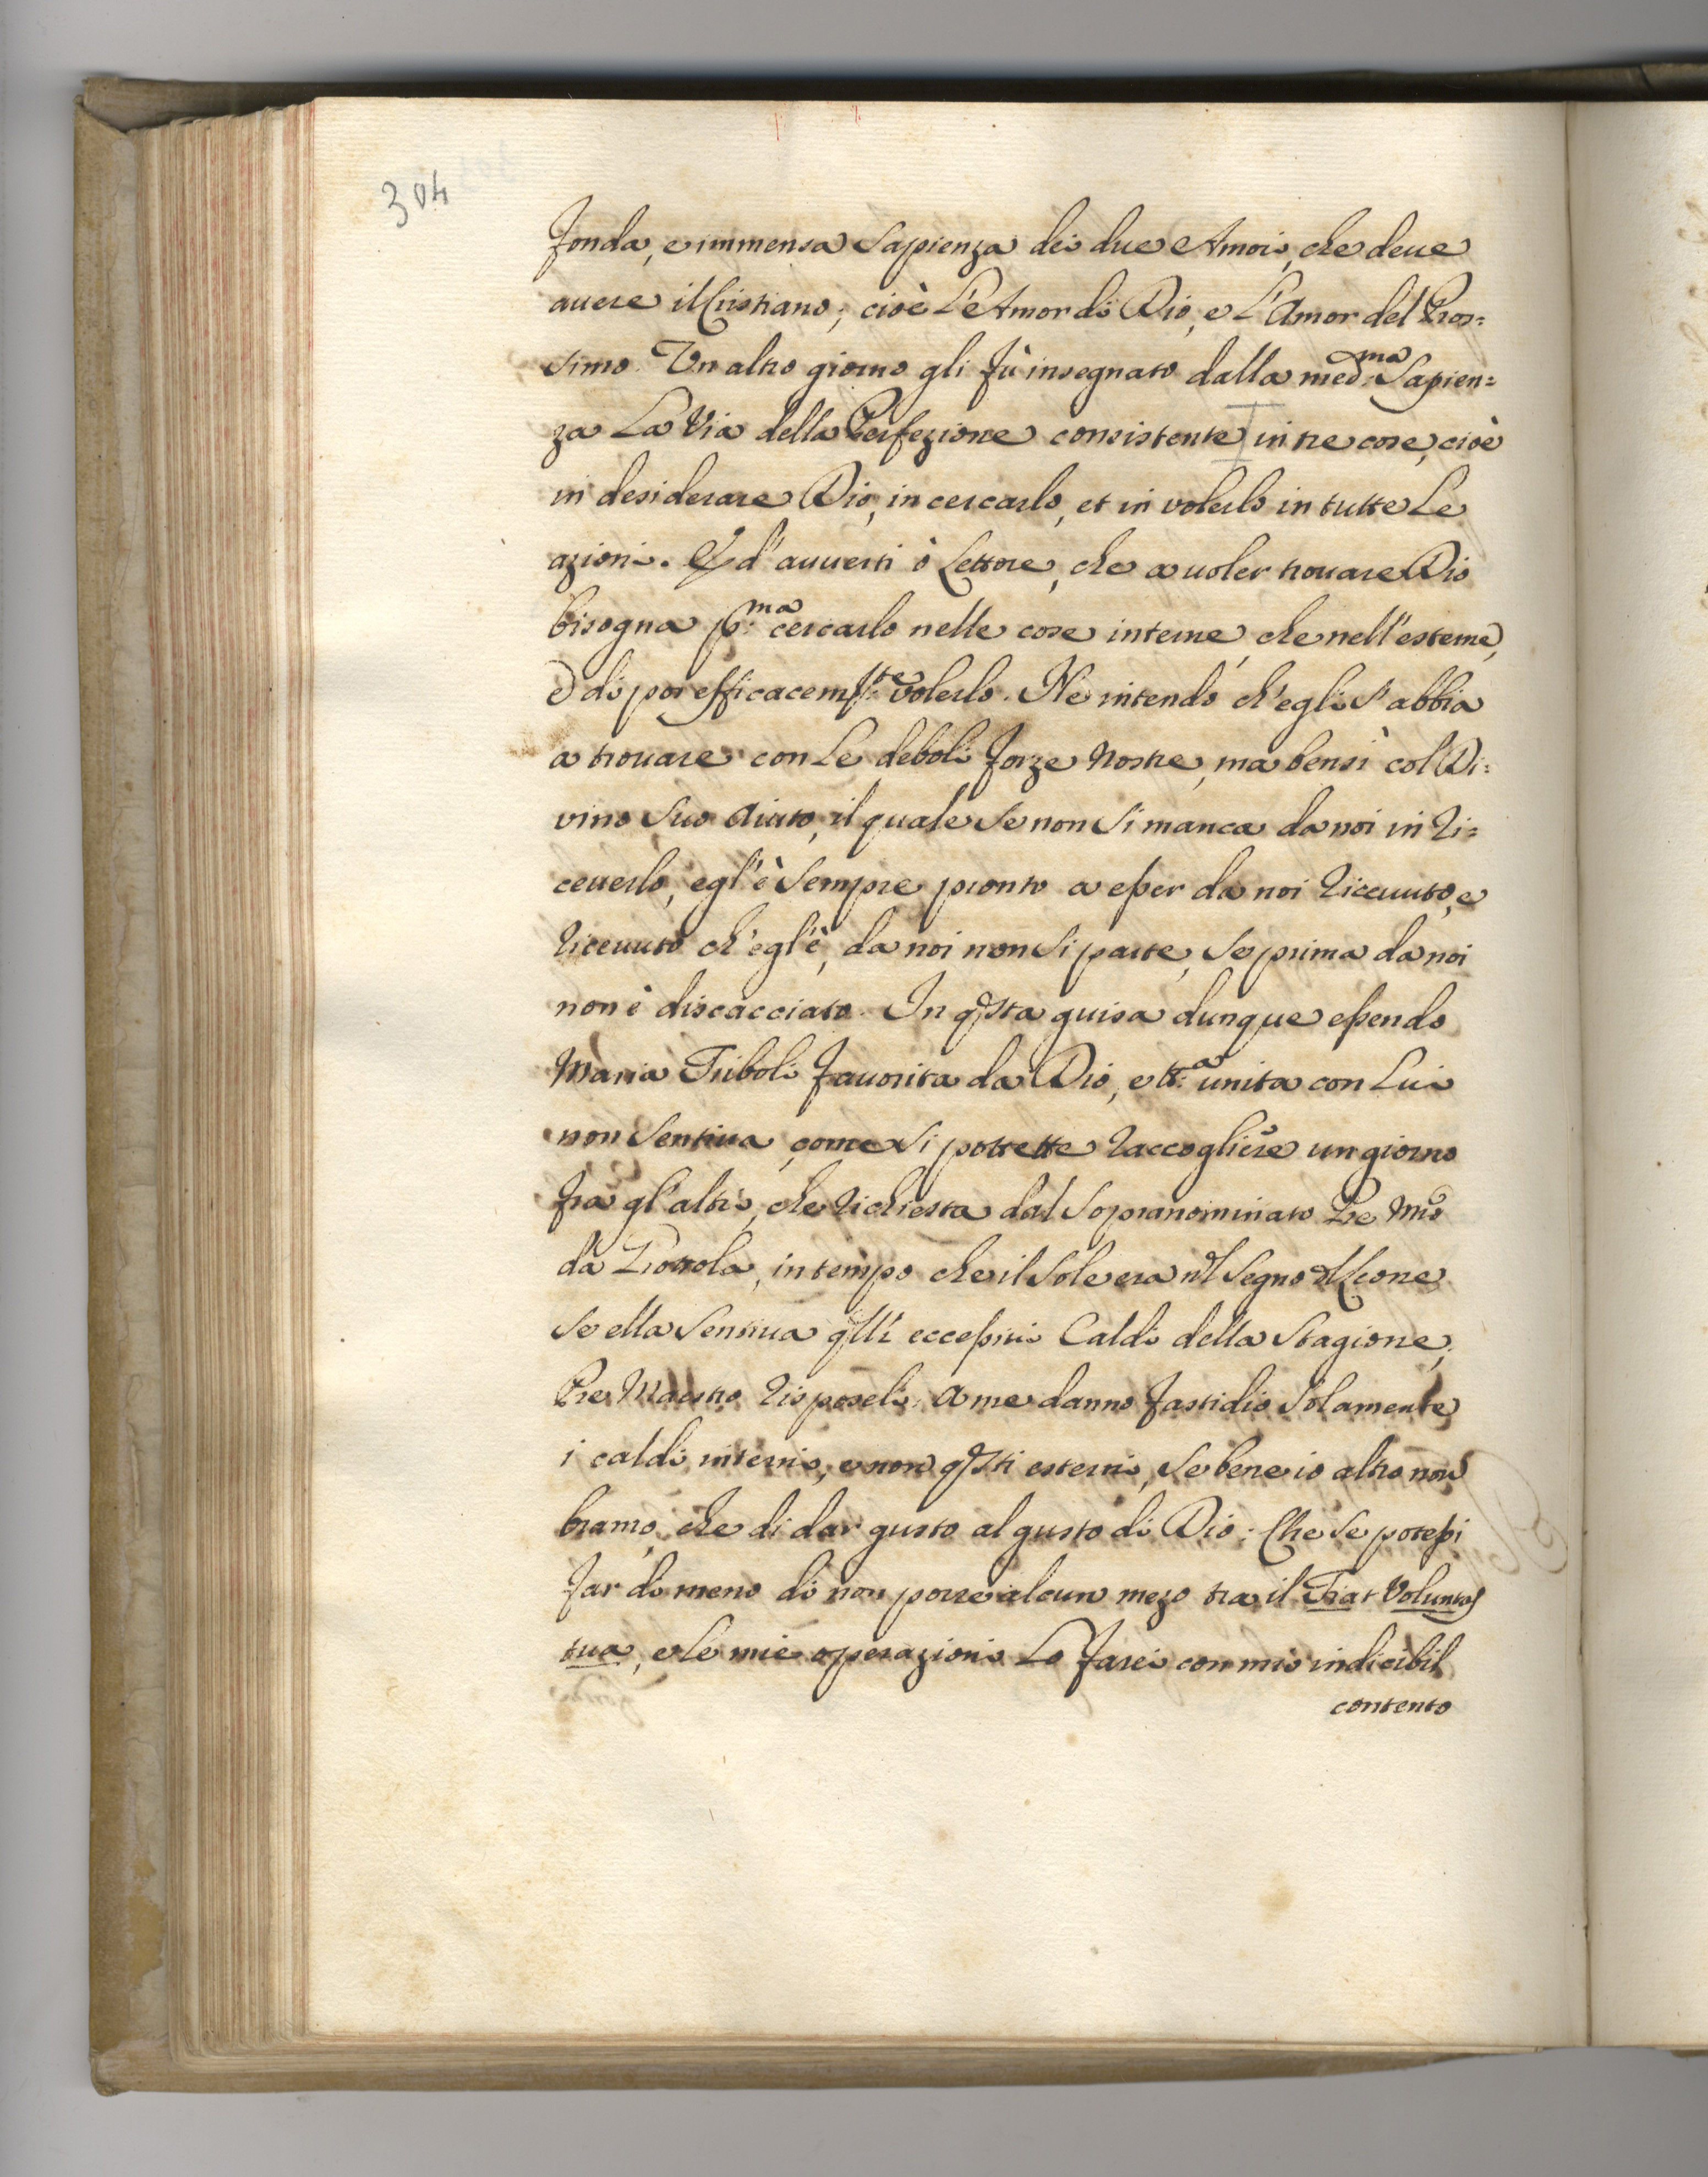 304
fonda, e immensa Sapienza dei due Amori, che deue
auere il Cristiano; cioè L'Amor di Dio, e L'Amor del Pros=
simo. Un altro giorno gli fù insegnato dalla med:ma Sapien=
za La Via della Perfezione consistente in tre cose, cioè
in desiderare Dio, in cercarlo, et in volerlo in tutte Le
azioni. E d'auuerti ò Lettore, che a uoler trouare Dio
bisogna p:ma cercarlo nelle cose interne, che nell'esterne,
e di poi efficacem:te volerlo. Ne intendo ch'egli s'abbia
a trouare con Le deboli forze nostre, ma bensì col Di=
vino Suo aiuto, il quale se non si manca da noi in ri=
ceuerlo, egl'è Sempre pronto a esser da noi riceuuto, e
riceuuto ch'egl'è, da noi non si parte, se prima da noi
non è discacciato. In qsta guisa dunque essendo
Maria Triboli fauorita da Dio, e tt:a unita con Lui
non Sentiua come si pottette raccogliere un giorno
fra gl'altri, che richiesta dal Sopranominato Pre Mro
da in tempo che il Sole era nel Segno del Leone
se ella Sentiua qlli eccessiui Caldi della Stagione,
Pre Maestro risposeli, a me danno fastidio solamente
i caldi interni, e non qsti esterni, se bene io altro non
bramo, che di dar gusto al gusto di Dio: Che se potessi
far di meno di non porre alcun mezo tra il Fiat Voluntas
tua, e Le mie operazioni Lo farei con mio indicibil
contento